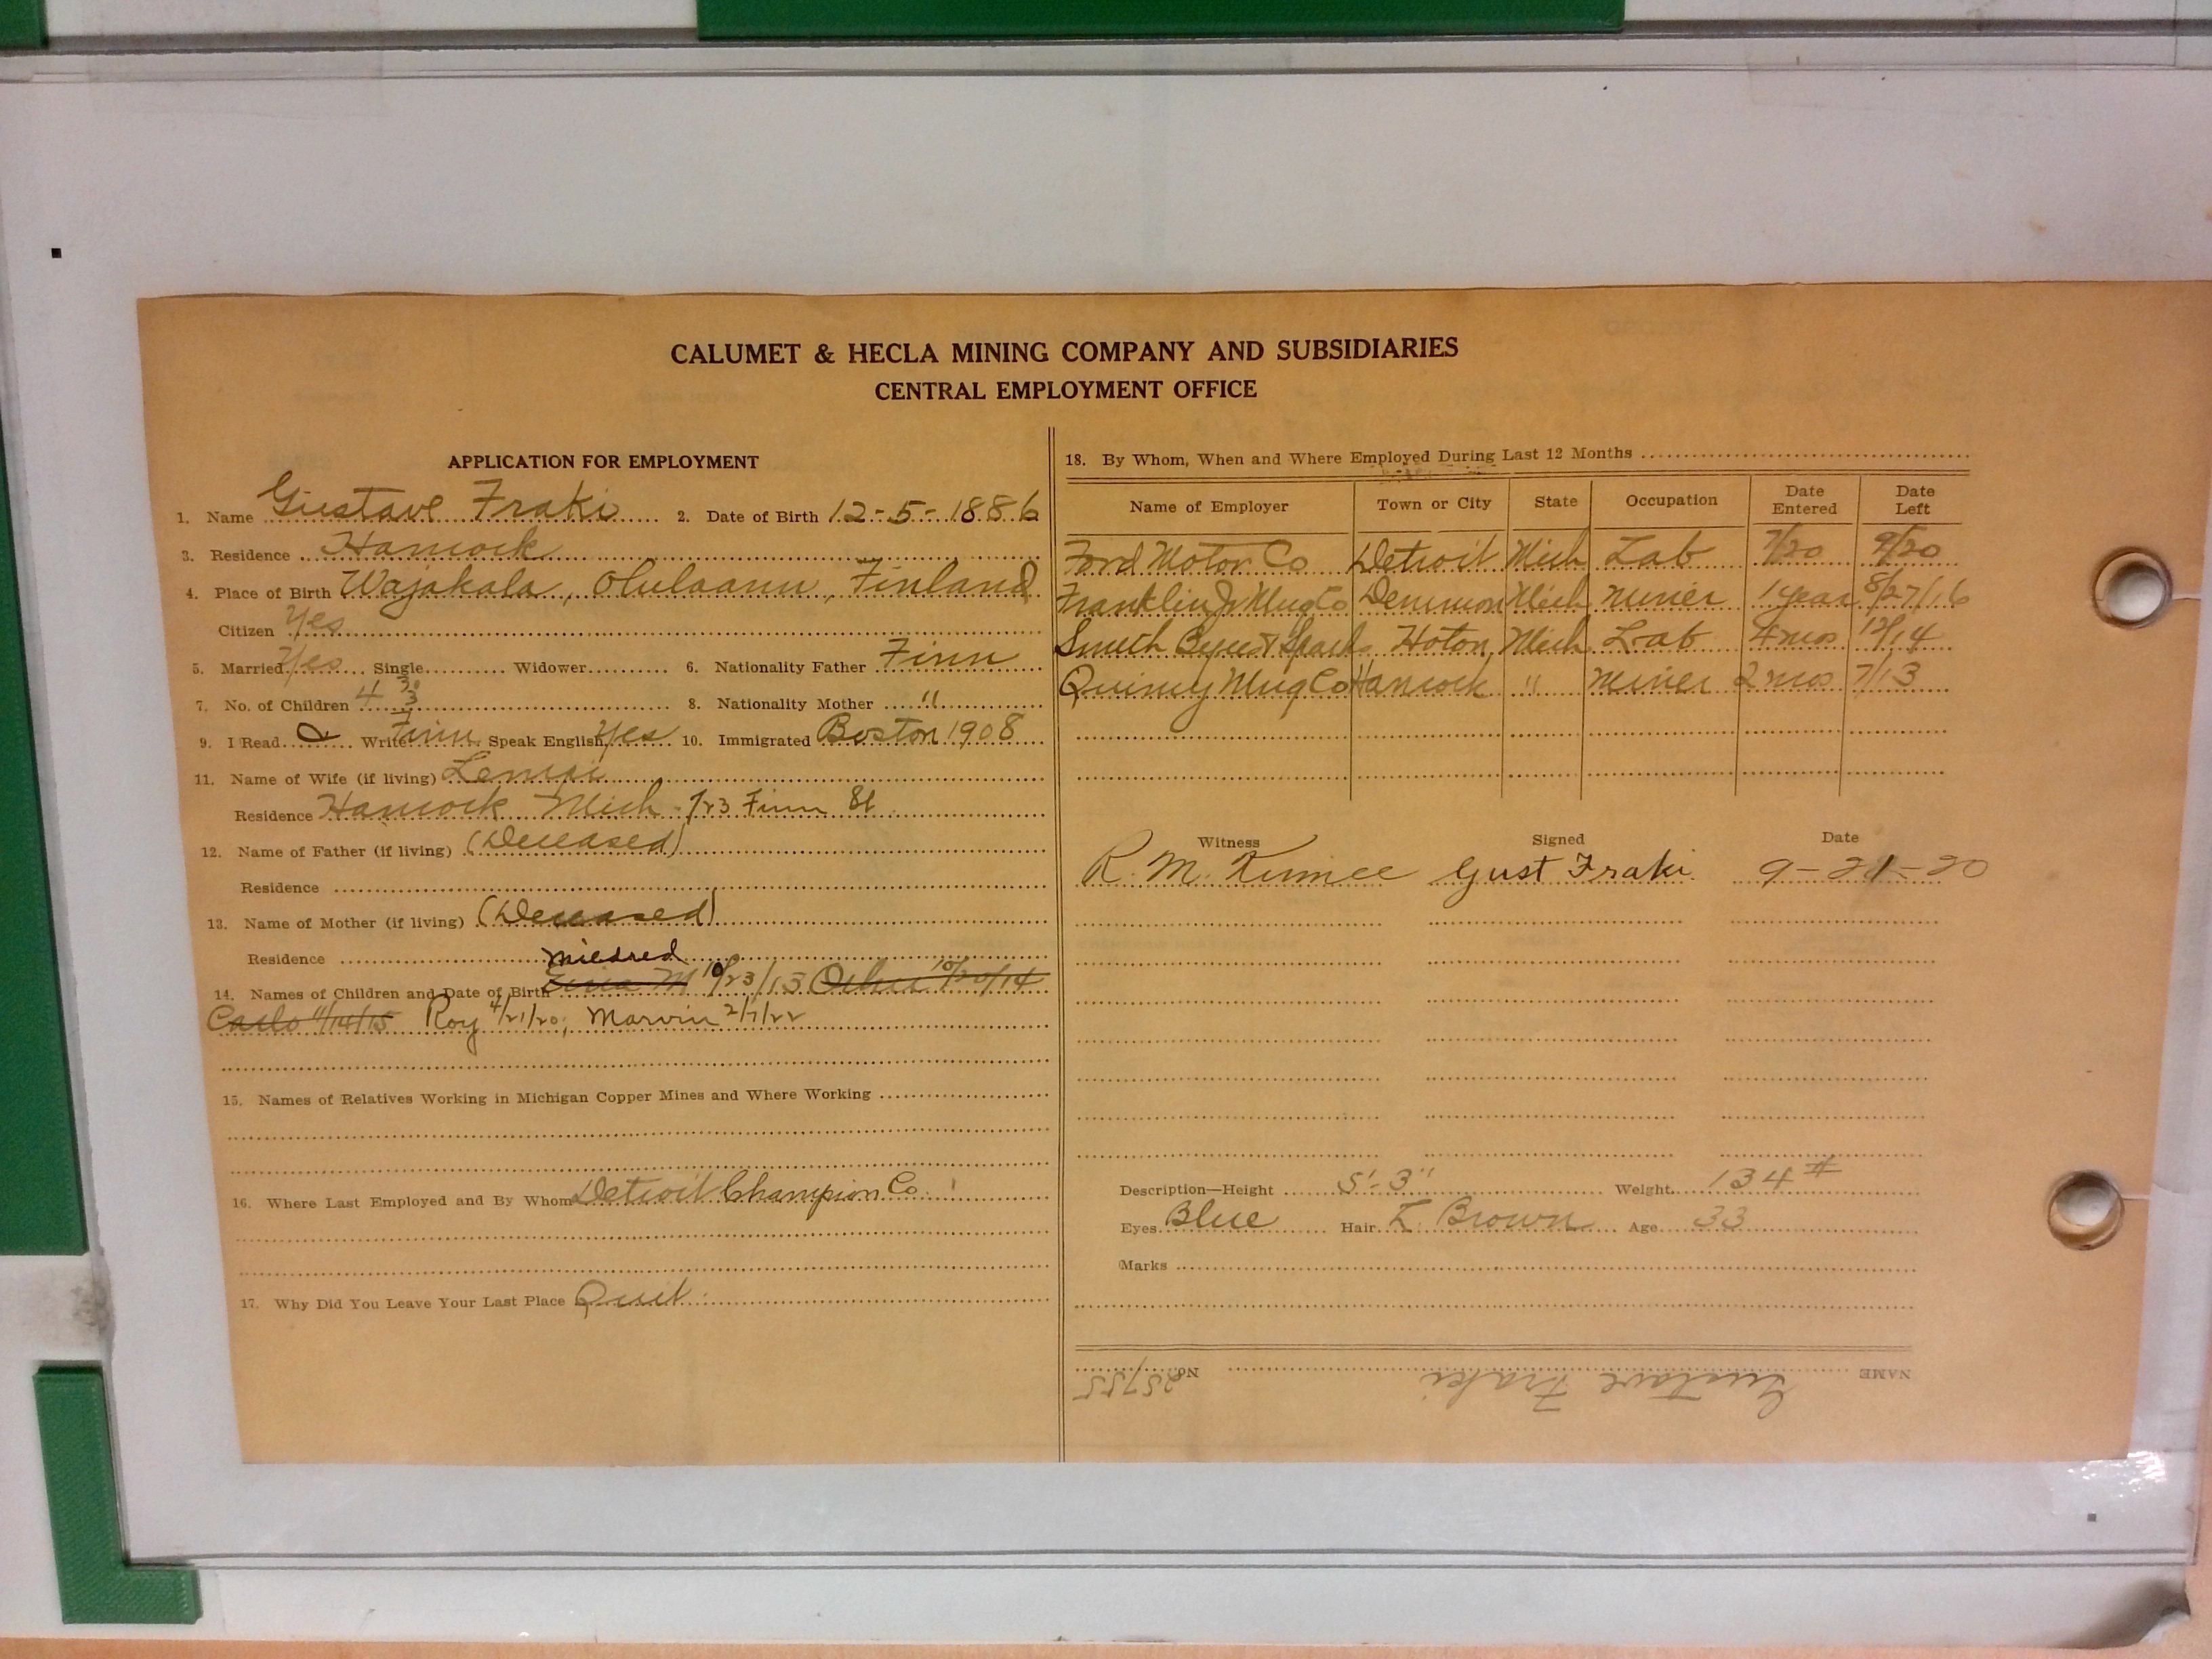 CALUMET & HECLA MINING COMPANY AND SUBSIDIARIES
CENTRAL EMPLOYMENT OFFICE
APPLICATION FOR EMPLOYMENT
1. Name Gustave Fraki 2. Date of Birth 12-5-1886
3. Residence Hancock
4. Place of Birth Wajakala, Olulaann, Finland
Citizen Yes
5. Married Yes Single Widower 6. Nationality Father Finn
7. No. of Children 4 3 3 8. Nationality Mother "
9. I Read & Write Finn Speak English Yes 10. Immigrated Boston 1908
11. Name of Wife (if living) Lempi
Residence Hancock Mich - 723 Finn St
12. Name of Father (if living) (Deceased)
Residence
13. Name of Mother (if living) (Deceased)
Residence
Mildred
14. Names of Children and Date of Birth M 10/23/13 10/20/14
Carlo 11/14/15 Roy 4/21/20; Marvin 2/7/22
15. Names of Relatives Working in Michigan Copper Mines and Where Working
16. Where Last Employed and By Whom Detroit Champion Co.
17. Why Did You Leave Your Last Place Quit
18. By Whom, When and Where Employed During Last 12 Months
Name of Employer Town or City State Occupation Date Entered Date Left
Ford Motor Co Detroit Mich Lab 7/20 9/20
Franklin Jr Mng Co Demmon Mich Miner 1 year 8/27/16
Smith Byers & Hoton, Mich Lab 4 mos 12/14
Quincy Mng Co Hancock " Miner 2 mos 7/13
Witness Signed Date
R. M. Gust Fraki 9-21-20
Description—Height 5'-3" Weight 134#
Eyes Blue Hair L. Brown Age 33
Marks
NAME Gustave Fraki No. 25755